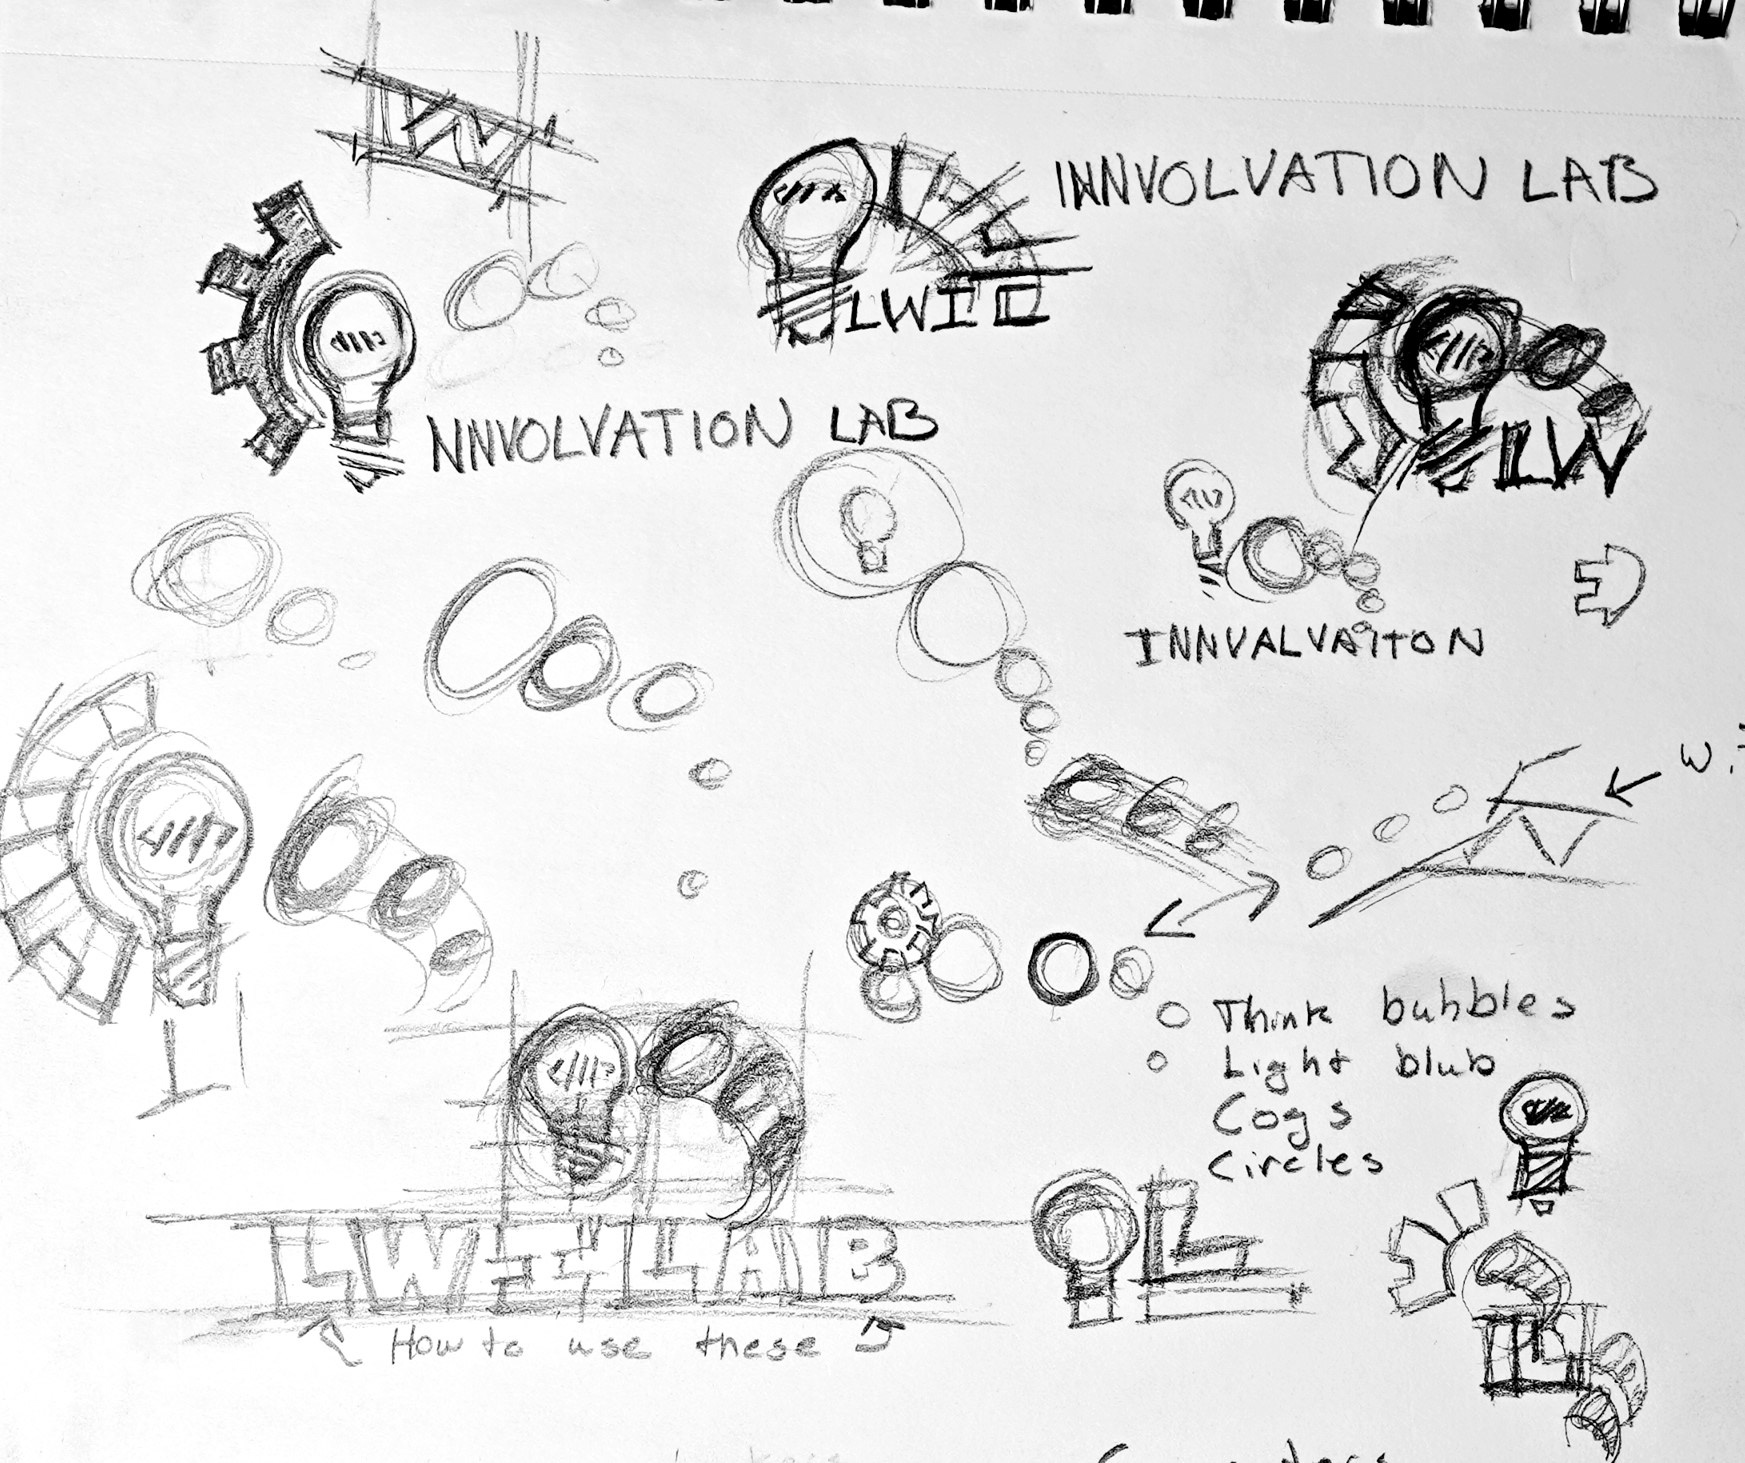 LW
INNVOLVATION LAB
LWI
NNVOLVATION LAB
LW
INNVALVATTON
Think bubbles
Light blub
Cogs
Circles
L
LWI LAB
How to use these